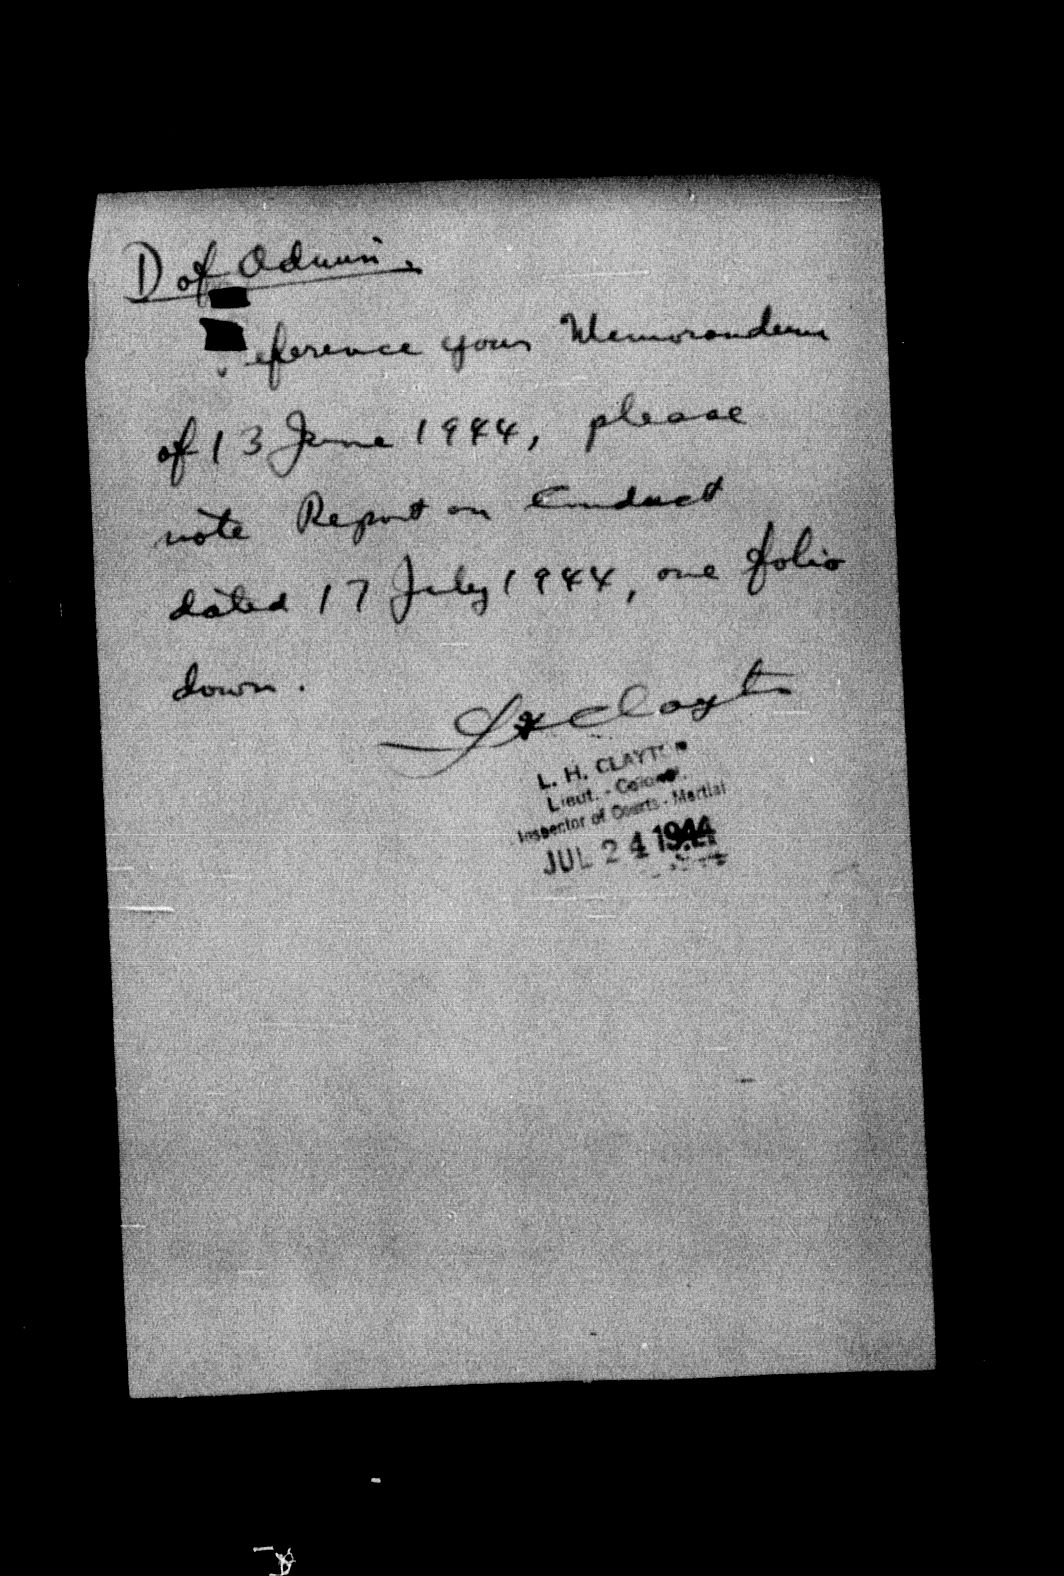 D of Admin.
eference your Memorandum
of 13 June 1944, please
note Report on Conduct
dated 17 July 1944, one folio
down.
L H Clayton
L. H. CLAYTON
Lieut. - Colonel.
Inspector of Courts - Martial
JUL 24 1944